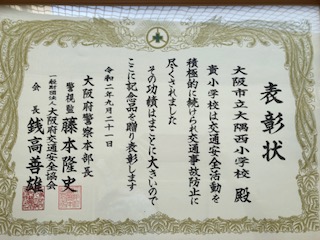 表彰状
大阪市立大隅西小学校 殿
貴小学校は交通安全活動を
積極的に続けられ交通事故防止に
尽くされました
その功績はまことに大きいので
ここに記念品を贈り表彰します
令和二年九月二十一日
大阪府警察本部長
警視監 藤本隆史
一般財団法人大阪府交通安全協会
会長 銭高善雄